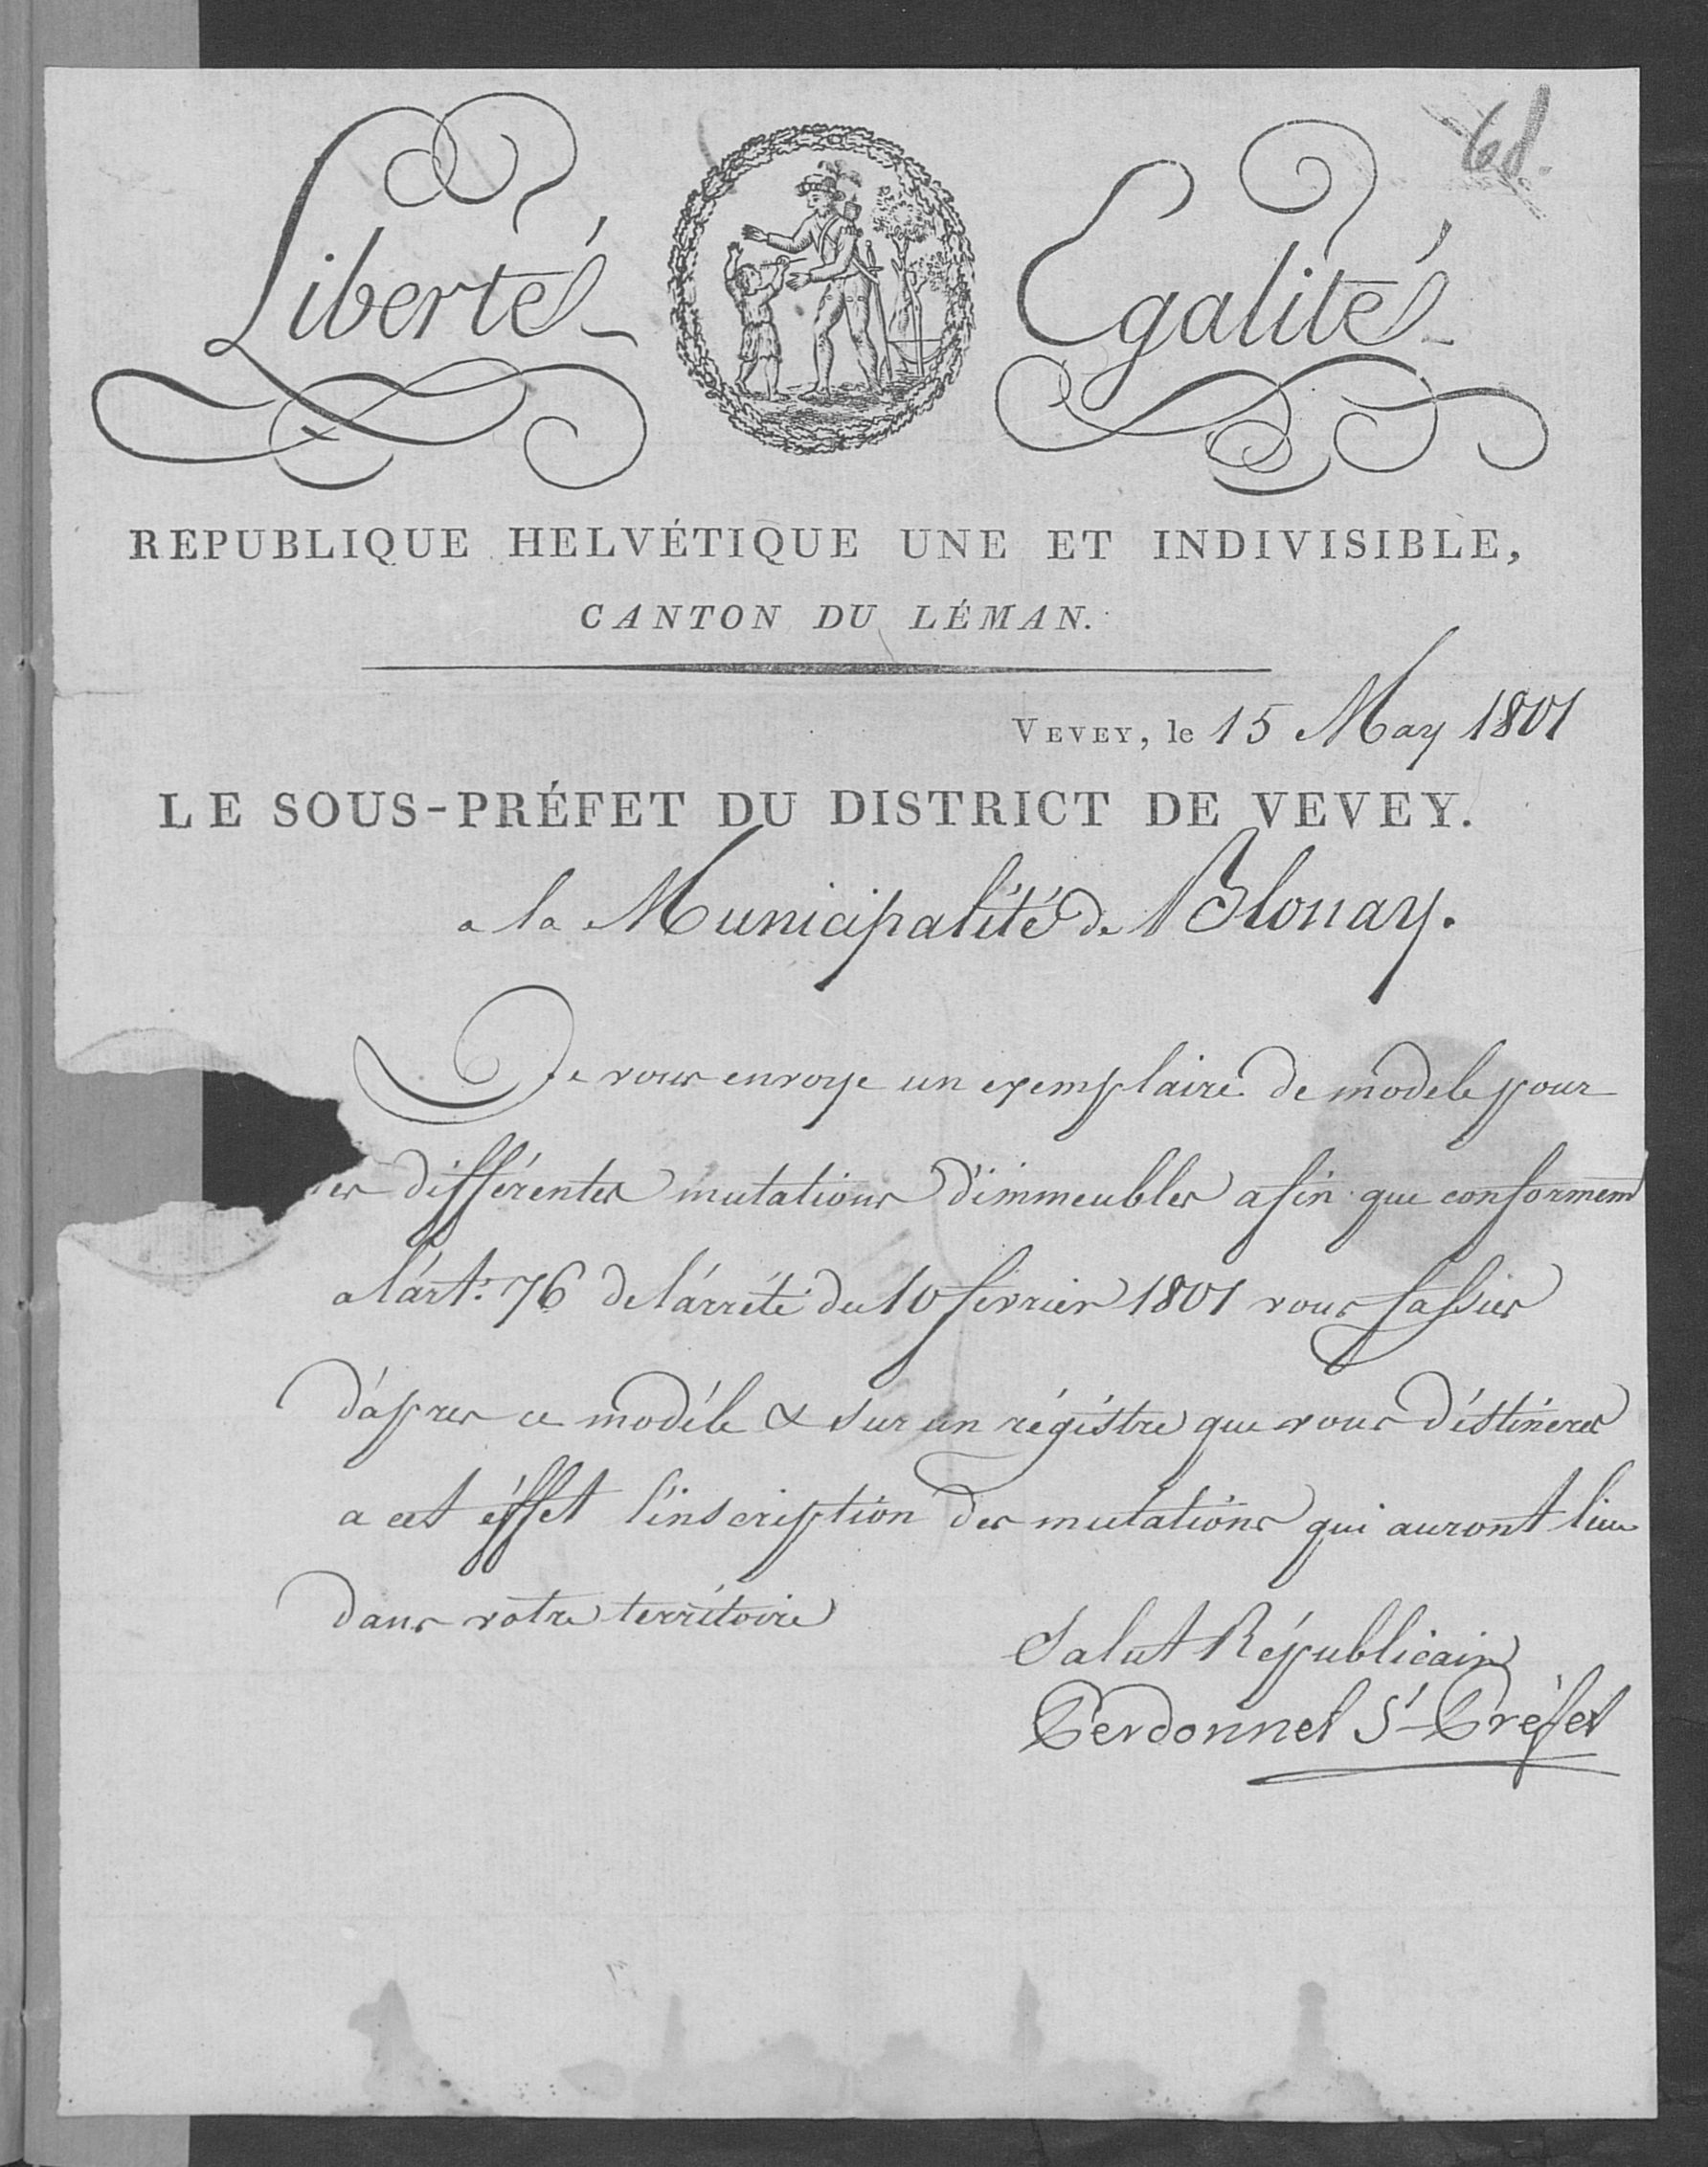 61.
Liberté Egalité
REPUBLIQUE HELVÉTIQUE UNE ET INDIVISIBLE,
CANTON DU LÉMAN.
VEVEY, le 15 May 1801
LE SOUS-PRÉFET DU DISTRICT DE VEVEY.
a la Municipalité de Blonay.
Je vous envoye un exemplaire de modele pour
différentes mutations d'immeubles afin que conformem
a l'art: 76 de l'arrété du 10 fevrier 1801 vous fassies
d'apres ce modéle & sur un régistre que vous déstineres
a cet éffet l'inscription des mutations qui auront lieu
dans votre territoire
Salut Républicain
Perdonnet S-Préfet